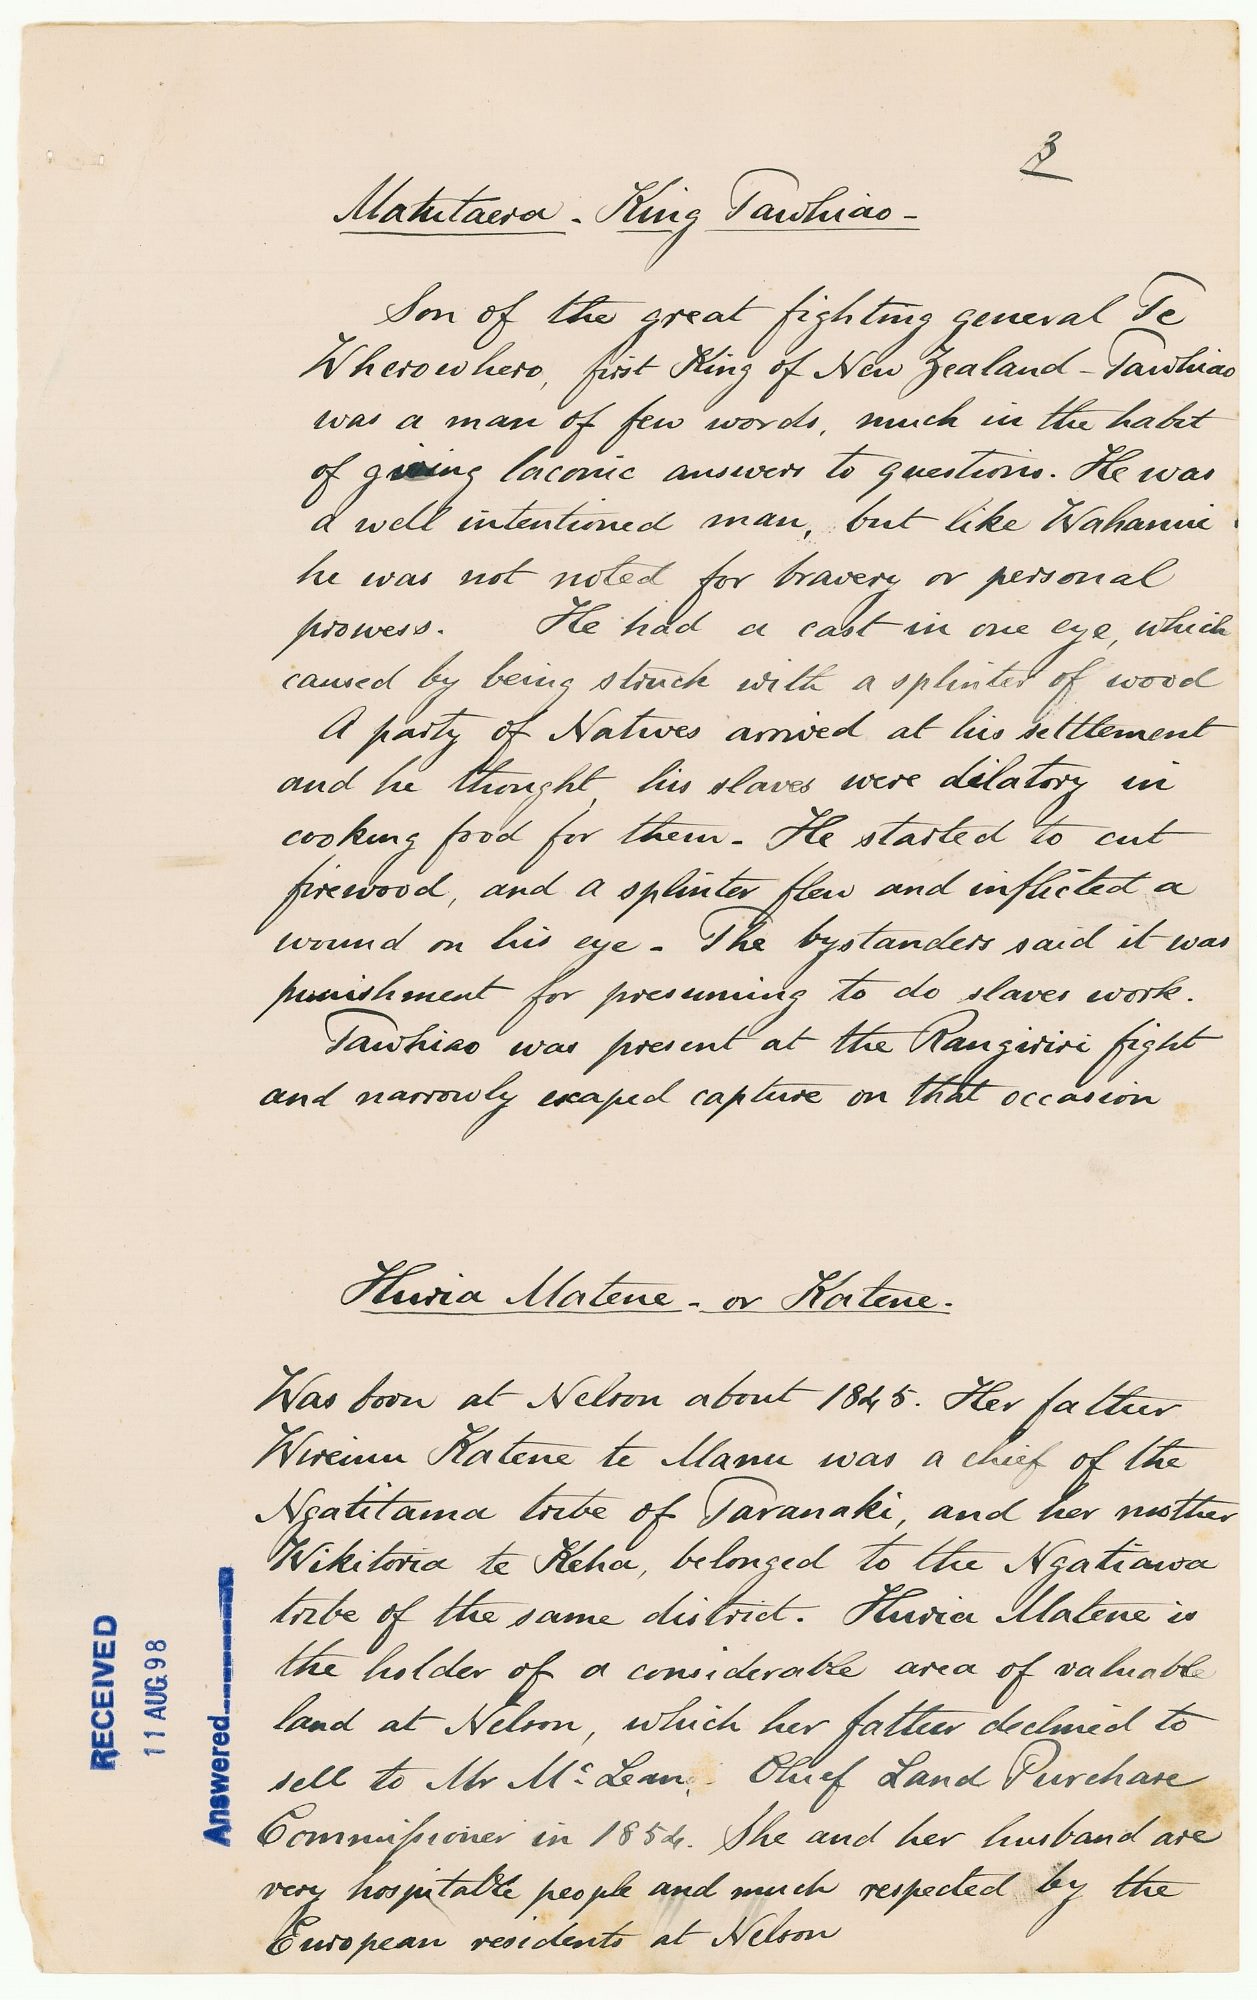 3
Matutaera - King Tawhiao -
Son of the great fighting general Te
Wherowhero, first King of New Zealand - Tawhiao
was a man of few words, much in the habit
of giving laconic answers to questions. He was
a well intentioned man, but like Wahanui
he was not noted for bravery or personal
prowess. He had a cast in one eye, which
caused by being struck with a splinter of wood
A party of Natives arrived at his settlement
and he thought, his slaves were dilatory in
cooking food for them - He started to cut
firewood, and a splinter flew and inflicted a
wound on his eye - The bystanders said it was
punishment for presuming to do slaves work.
Tawhiao was present at the Rangiriri fight
and narrowly escaped capture on that occasion
Huria Matene - or Katene.
Was born at Nelson about 1845. Her father
Wiremu Katene te Manu was a chief of the
Ngatitama tribe of Taranaki, and her mother
Wikitoria te Keha, belonged to the Ngatiawa
tribe of the same district. Huria Matene is
the holder of a considerable area of valuable
land at Nelson, which her father declined to
sell to Mr McLean, Chief Land Purchase
Commissioner in 1854. She and her husband are
very hospitable people and much respected by the
European residents at Nelson
RECEIVED
11 AUG. 98
Answered